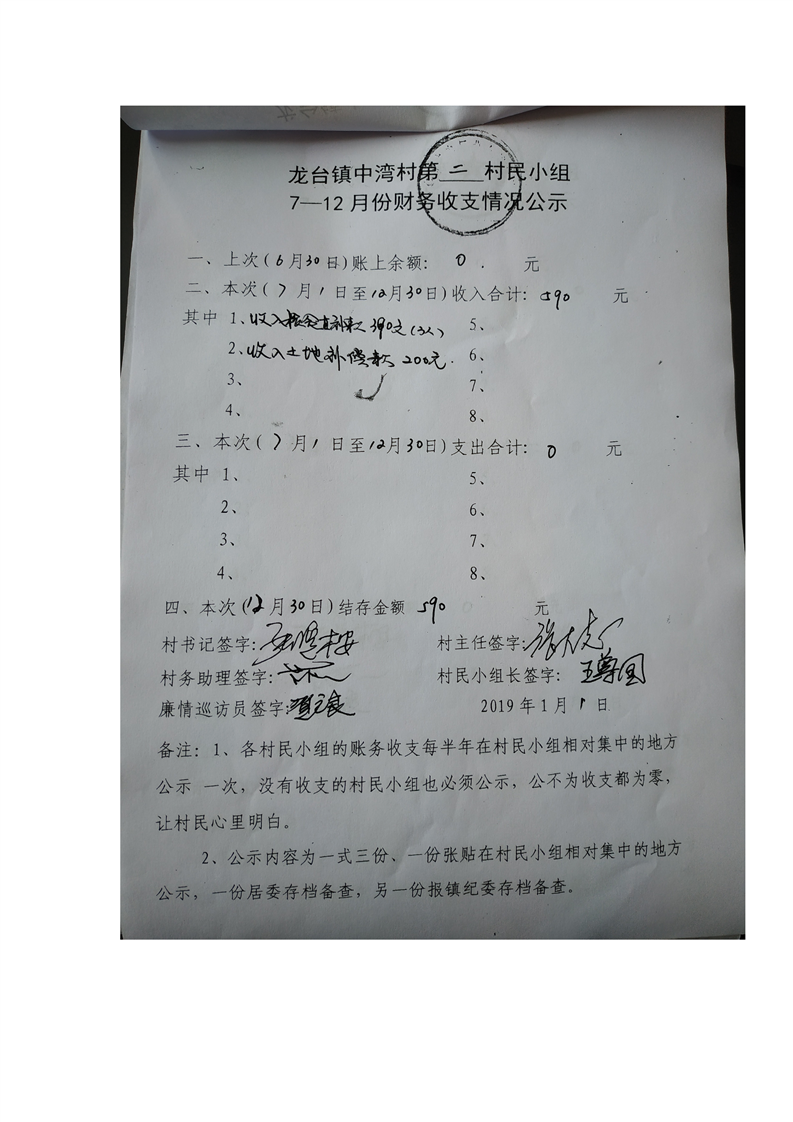 龙台镇中湾村第二村民小组
7—12月份财务收支情况公示
一、上次(6月30日)账上余额: 0. 元
二、本次(7月1日至12月30日)收入合计: 590 元
其中 1、收入 补款390元 5、
2、收入土地补偿款200元. 6、
3、 7、
4、 8、
三、本次(7月1日至12月30日)支出合计: 0 元
其中 1、 5、
2、 6、
3、 7、
4、 8、
四、本次(12月30日)结存金额 590 元
村书记签字: 村主任签字:
村务助理签字: 村民小组长签字:
廉情巡访员签字: 2019年1月1日
备注: 1、各村民小组的账务收支每半年在村民小组相对集中的地方
公示 一次,没有收支的村民小组也必须公示,公不为收支都为零,
让村民心里明白。
2、公示内容为一式三份、一份张贴在村民小组相对集中的地方
公示,一份居委存档备查,另一份报镇纪委存档备查。